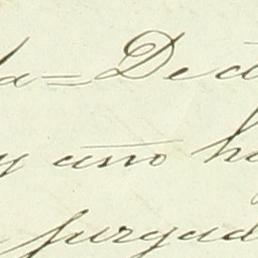 la = De a
y uno ha
juzgad